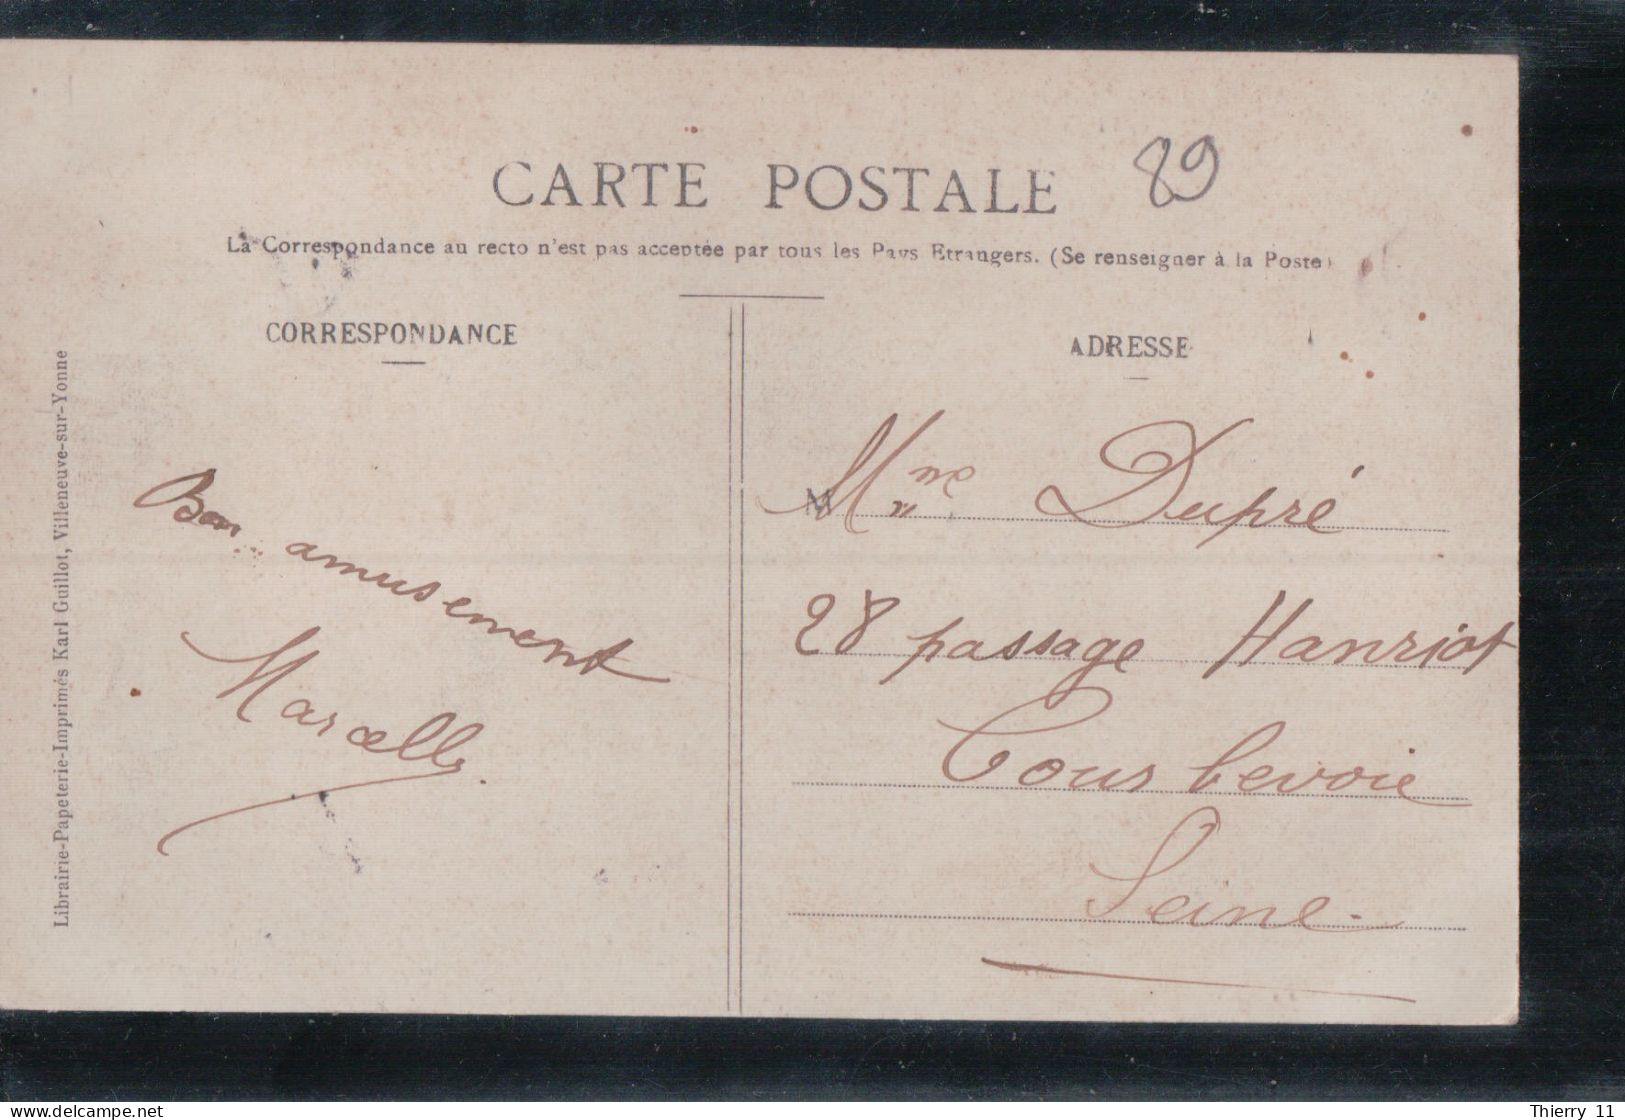 CARTE POSTALE
89
La Correspondance au recto n'est pas acceptée par tous les Pays Etrangers. (Se renseigner à la Poste)
CORRESPONDANCE
ADRESSE
Librairie-Papeterie-Imprimés Karl Guillot, Villeneuve-sur-Yonne
Bon amusement
Marcelle.
M
Mme Dupré
28 passage Hanriot
Courbevoie
Seine.
www.delcampe.net
Thierry 11